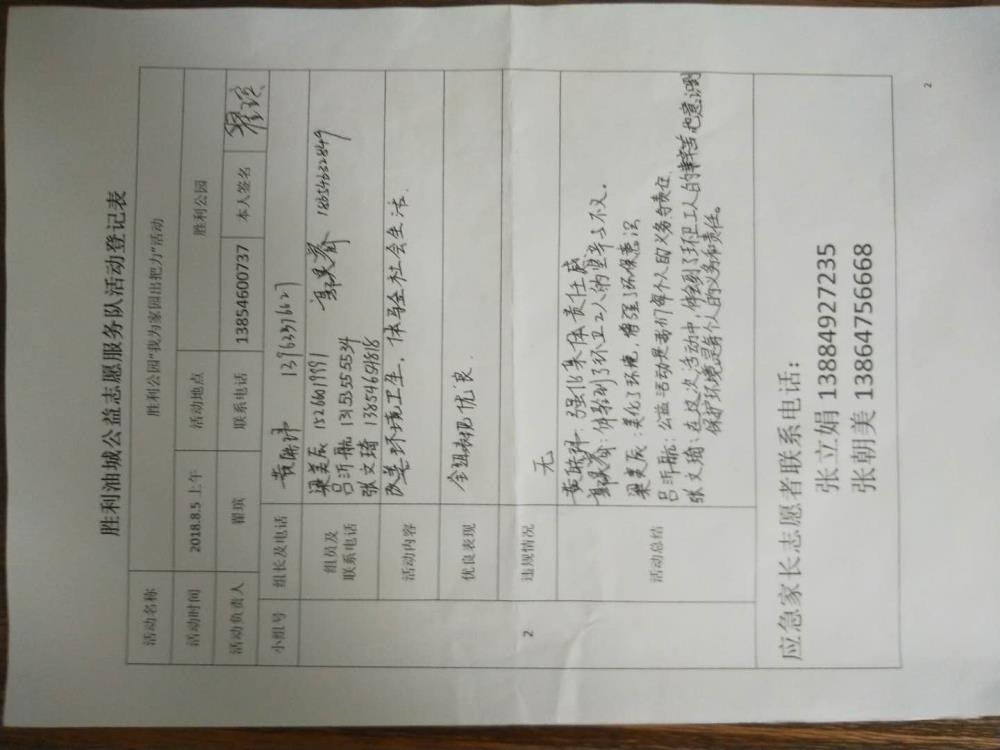 胜利油城公益志愿服务队活动登记表
活动名称 胜利公园"我为家园出把力"活动
活动时间 2018.8.5 上午 活动地点 胜利公园
活动负责人 翟瑸 联系电话 13854600737 本人签名 翟瑸
小组号 组长及电话 13963376627
2 组员及联系电话 梁美辰 15266019991 18654632849
吕沂航 13155555534
张文琦 13854691818
活动内容 改善环境卫生，体验社会生活.
优良表现 全组表现优良.
违规情况 无
活动总结 强化集体责任感
体验到了环卫工人的坚辛不义.
梁美辰：美化了环境，增强了环保意识
吕沂航：公益活动是我们每个人的义务与责任.
张文琦：在这次活动中，体会到了环卫工人的辛苦也意识到
保护环境是每个人的义务和责任。
应急家长志愿者联系电话：
张立娟 13884927235
张朝美 13864756668
2